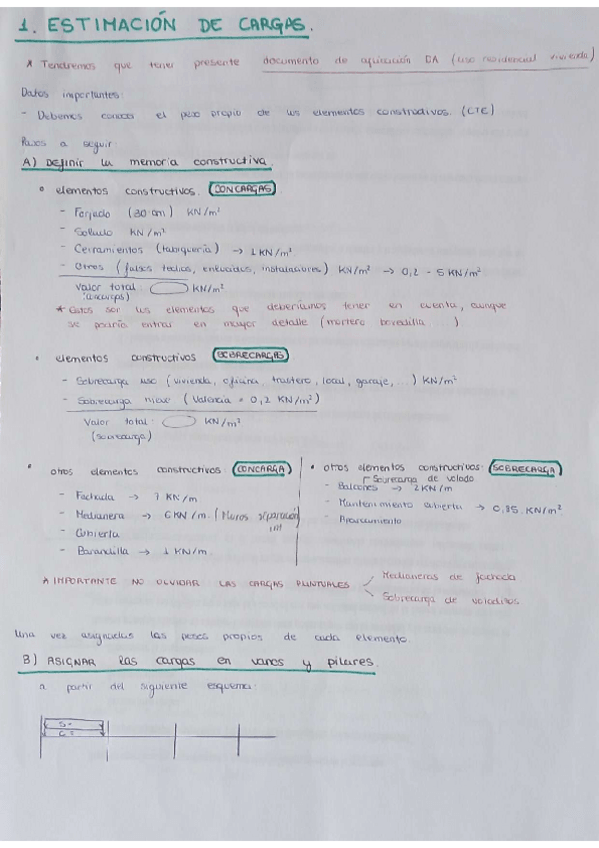 1. ESTIMACIÓN DE CARGAS.
* Tendremos que tener presente documento de aplicación DA (uso residencial vivienda)
Datos importantes:
- Debemos conocer el peso propio de los elementos constructivos. (CTE)
Pasos a seguir:
A) Definir la memoria constructiva.
• elementos constructivos. (CONCARGAS)
- Forjado (30 cm) KN/m²
- Solado KN/m²
- Cerramientos (tabiquería) → 1 KN/m²
- Otros (falsos techos, enlucidos, instalaciones) KN/m² → 0,2 - 5 KN/m²
Valor total: KN/m²
(concargas)
* Estos son los elementos que deberíamos tener en cuenta, aunque
se podría entrar en mayor detalle (mortero bovedilla ...)
• elementos constructivos (SOBRECARGAS)
- Sobrecarga uso (vivienda, oficina, trastero, local, garaje, ...) KN/m²
- Sobrecarga nieve (Valencia = 0,2 KN/m²)
Valor total: KN/m²
(sobrecarga)
• otros elementos constructivos: (CONCARGA)
- Fachada → 7 KN/m
- Medianera → 6 KN/m. (Muros separación
- Cubierta
- Barandilla → 1 KN/m.
• otros elementos constructivos: (SOBRECARGA)
Sobrecarga de volado
- Balcones → 2 KN/m
- Mantenimiento cubierta → 0,85. KN/m²
- Aparcamiento
* IMPORTANTE NO OLVIDAR LAS CARGAS PUNTUALES
Medianeras de fachada
Sobrecarga de voladizos.
Una vez asignados los pesos propios de cada elemento.
B) ASIGNAR las cargas en vanos y pilares.
a partir del siguiente esquema:
S=
C=